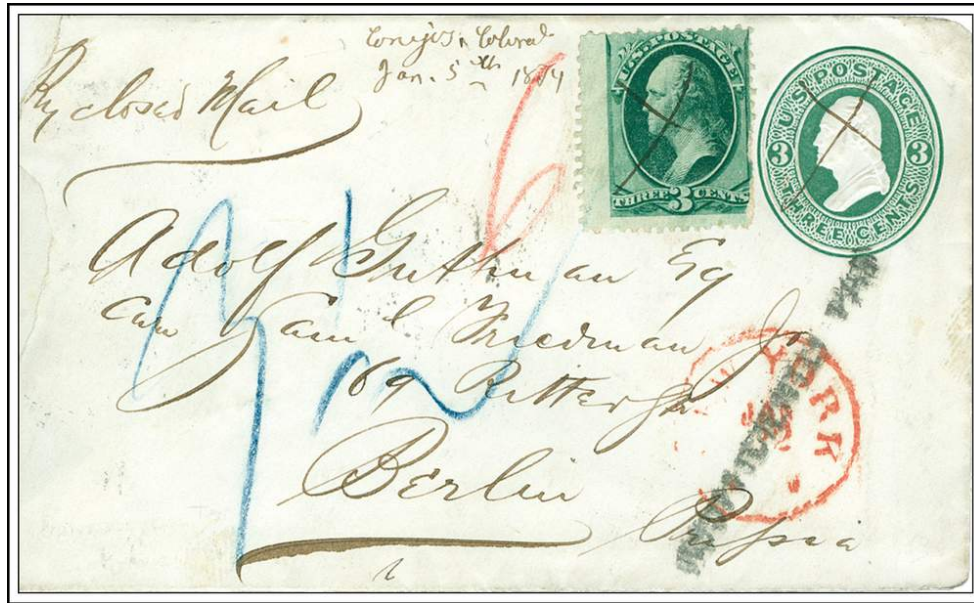 Conejos, Colorad
Jan. 5th 1874
By closed Mail
U.S. POSTAGE
THREE 3 CENTS
U.S. POSTAGE
3 3
THREE CENTS
6
Adolf Guthman Esq
Care Saml Friedman Jr
69 Ritterstr
Berlin
YORK